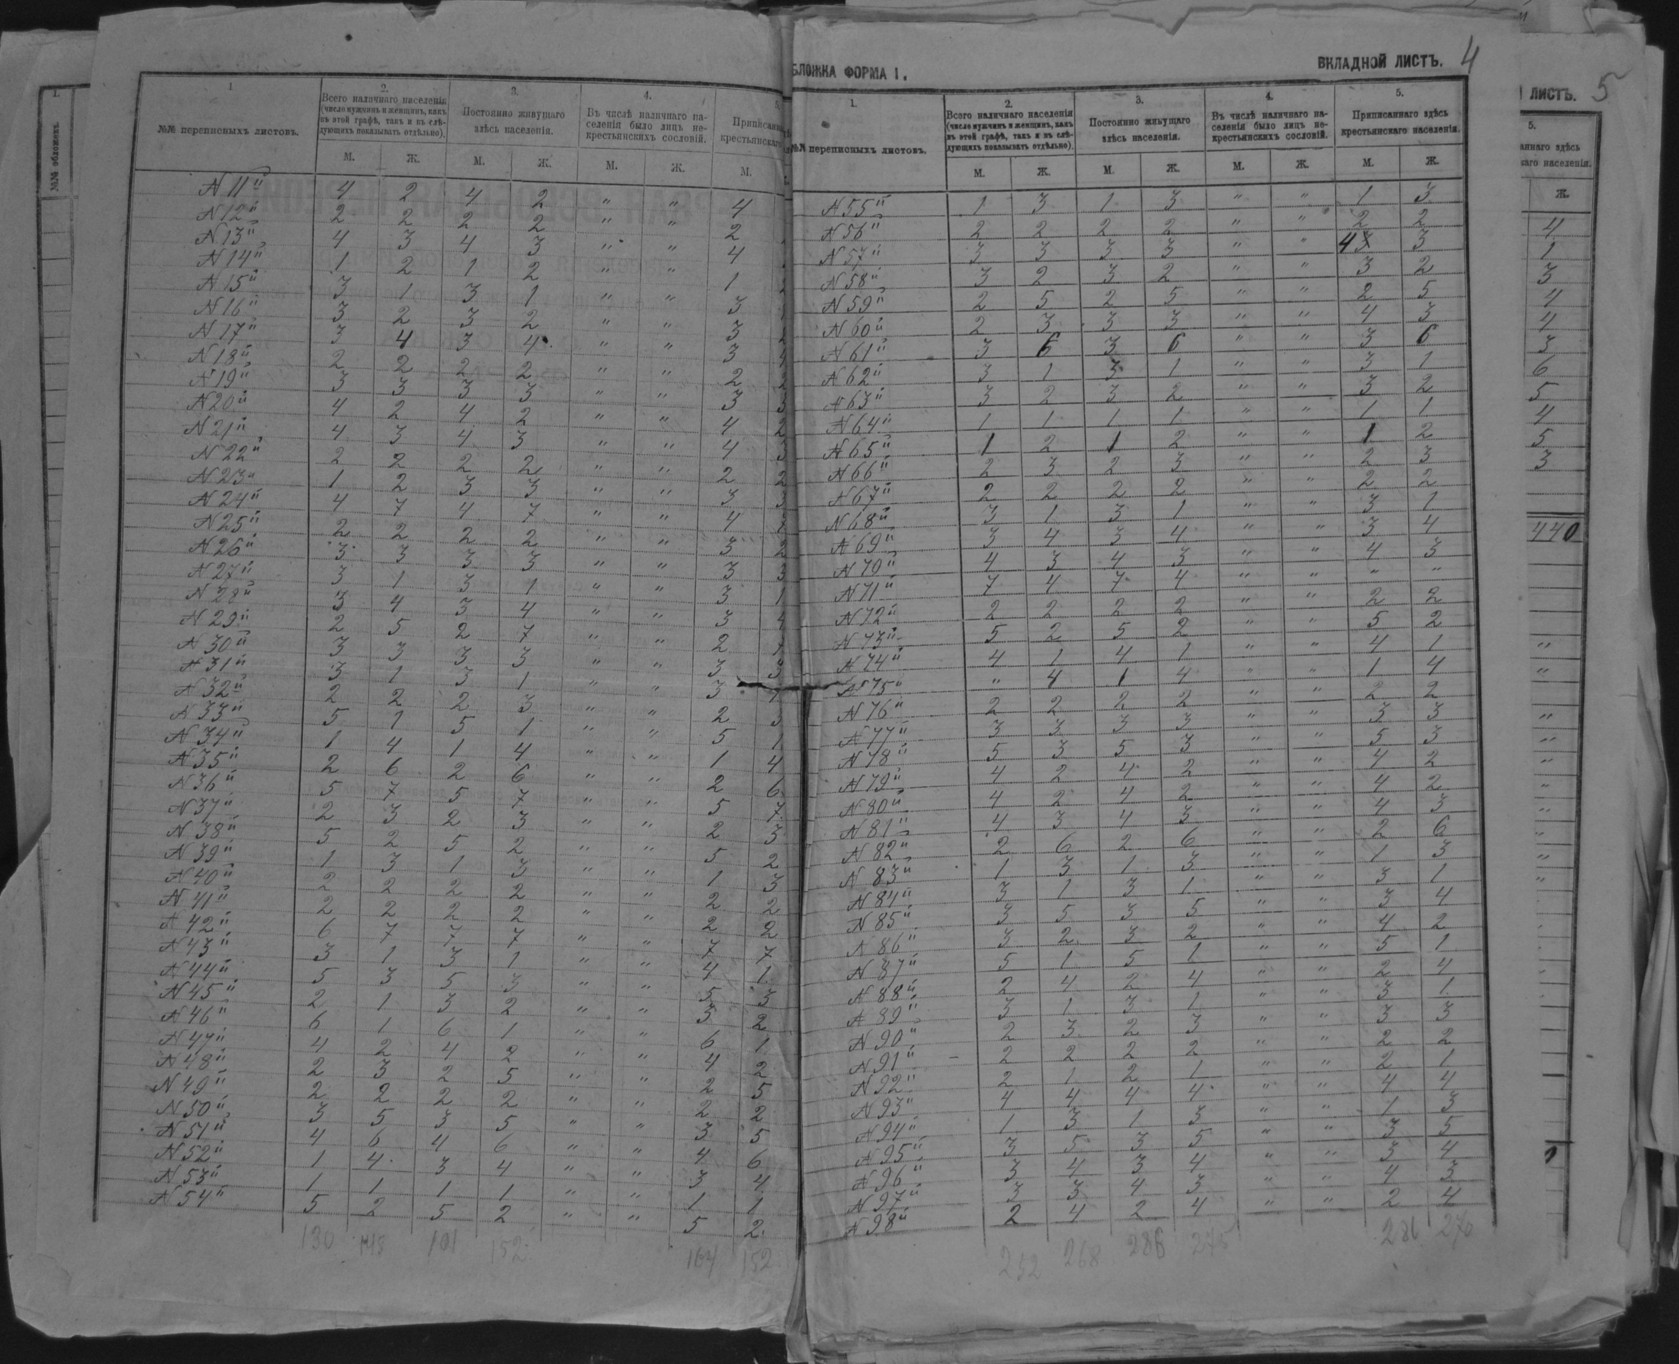 1.
№№ переписныхъ листовъ.
2.
Всего наличнаго населенія
(число мужчинъ и женщинъ, какъ
въ этой графѣ, такъ и въ слѣ-
дующихъ показывать отдѣльно).
3.
Постоянно живущаго
здѣсь населенія.
4.
Въ числѣ наличнаго на-
селенія было лицъ не-
крестьянскихъ сословій.
М. Ж. М. Ж. М. Ж. М.
N 11й 4 2 4 2 " " 4
N 12й 2 2 2 2 " " 2
N 13й 4 3 4 3 " " 4
N 14й 1 2 1 2 " " 1
N 15й 3 1 3 1 " " 3
N 16й 3 2 3 2 " " 3
N 17й 3 4 3 4 " " 3
N 18й 2 2 2 2 " " 2
N 19й 3 3 3 3 " " 3
N 20й 4 2 4 2 " " 4 2
N 21й 4 3 4 3 " " 4 3
N 22й 2 2 2 2 " " 2 2
N 23й 1 2 3 3 " " 3 3
N 24й 4 7 4 7 " " 4 7
N 25й 2 2 2 2 " " 3 2
N 26й 3 3 3 3 " " 3 3
N 27й 3 1 3 1 " " 3 1
N 28й 3 4 3 4 " " 3 4
N 29й 2 5 2 7 " " 2 7
N 30й 3 3 3 3 " " 3 3
N 31й 3 1 3 1 " " 3 1
N 32й 2 2 2 3 " " 2 3
N 33й 5 1 5 1 " " 5 1
N 34й 1 4 1 4 " " 1 4
N 35й 2 6 2 6 " " 2 6
N 36й 5 7 5 7 " " 5 7
N 37й 2 3 2 3 " " 2 3
N 38й 5 2 5 2 " " 5 2
N 39й 1 3 1 3 " " 1 3
N 40й 2 2 2 2 " " 2 2
N 41й 2 2 2 2 " " 2 2
N 42й 6 7 7 7 " " 7 7
N 43й 3 1 3 1 " " 4 1
N 44й 5 3 5 3 " " 5 3
N 45й 2 1 3 2 " " 3 2
N 46й 6 1 6 1 " " 6 1
N 47й 4 2 4 2 " " 4 2
N 48й 2 3 2 5 " " 2 5
N 49й 2 2 2 2 " " 2 2
N 50й 3 5 3 5 " " 3 5
N 51й 4 6 4 6 " " 4 6
N 52й 1 4 3 4 " " 3 4
N 53й 1 1 1 1 " " 1 1
N 54й 5 2 5 2 " " 5 2
130 152 164 152
ФОРМА I.
ВКЛАДНОЙ ЛИСТЪ. 4
1.
переписныхъ листовъ.
2.
Всего наличнаго населенія
(число мужчинъ и женщинъ, какъ
въ этой графѣ, такъ и въ слѣ-
дующихъ показывать отдѣльно).
3.
Постоянно живущаго
здѣсь населенія.
4.
Въ числѣ наличнаго на-
селенія было лицъ не-
крестьянскихъ сословій.
5.
Приписаннаго здѣсь
крестьянскаго населенія.
М. Ж. М. Ж. М. Ж. М. Ж.
N 55й 1 3 1 3 " " 1 3
N 56й 2 2 2 2 " " 2 2
N 57й 3 3 3 3 " " 4 3
N 58й 3 2 3 2 " " 3 2
N 59й 2 5 2 5 " " 2 5
N 60й 2 3 3 3 " " 4 3
N 61й 3 6 3 6 " " 3 6
N 62й 3 1 3 1 " " 3 1
N 63й 3 2 3 2 " " 3 2
N 64й 1 1 1 1 " " 1 1
N 65й 1 2 1 2 " " 1 2
N 66й 2 3 2 3 " " 2 3
N 67й 2 2 2 2 " " 2 2
N 68й 3 1 3 1 " " 3 1
N 69й 3 4 3 4 " " 3 4
N 70й 4 3 4 3 " " 4 3
N 71й 7 4 7 4 " " " "
N 72й 2 2 2 2 " " 2 2
N 73й 5 2 5 2 " " 5 2
N 74й 4 1 4 1 " " 4 1
N 75й " 4 1 4 " " 1 4
N 76й 2 2 2 2 " " 2 2
N 77й 3 3 3 3 " " 3 3
N 78й 5 3 5 3 " " 5 3
N 79й 4 2 4 2 " " 4 2
N 80й 4 2 4 2 " " 4 2
N 81й 4 3 4 3 " " 4 3
N 82й 2 6 2 6 " " 2 6
N 83й 1 3 1 3 " " 1 3
N 84й 3 1 3 1 " " 3 1
N 85й 3 5 3 5 " " 3 4
N 86й 3 2 3 2 " " 4 2
N 87й 5 1 5 1 " " 5 1
N 88й 2 4 2 4 " " 2 4
N 89й 3 1 3 1 " " 3 1
N 90й 2 3 2 3 " " 3 3
N 91й 2 2 2 2 " " 2 2
N 92й 2 1 2 1 " " 2 1
N 93й 4 4 4 4 " " 4 4
N 94й 1 3 1 3 " " 1 3
N 95й 3 5 3 5 " " 3 5
N 96й 3 4 3 4 " " 3 4
N 97й 3 3 4 3 " " 4 3
N 98й 2 4 2 4 " " 2 4
232 268 286 275 286 276
ЛИСТЪ. 5
5.
Ж.
4
1
3
4
4
3
6
5
4
5
3
440